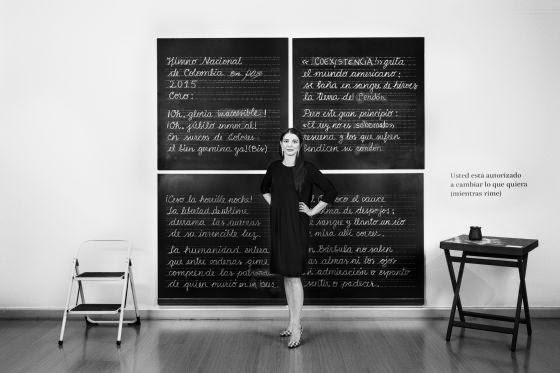 Himno Nacional
de Colombia en paz
2015
Coro:
¡Oh, gloria inaccesible!
¡Oh, júbilo
En surcos de dolores
el bien germina ya! (Bis)
« ¡COEXISTENCIA!» grita
el mundo americano;
se baña en sangre de héroes
la tierra de Perdón
Pero este gran principio:
«El rey no es
resuena y los que sufren
bendicen su
¡Cesó la horrible noche!
La libertad sublime
derrama las auroras
de su invencible luz.
La humanidad entera
que entre cadenas gime
comprende las palabras
de quien murió en
el cauce
de despojos;
sangre y llanto un río
mira allí correr.
Bárbula no saben
almas ni los ojos
admiración o espanto
sentir o padecer.
Usted está autorizado
a cambiar lo que quiera
(mientras rime)